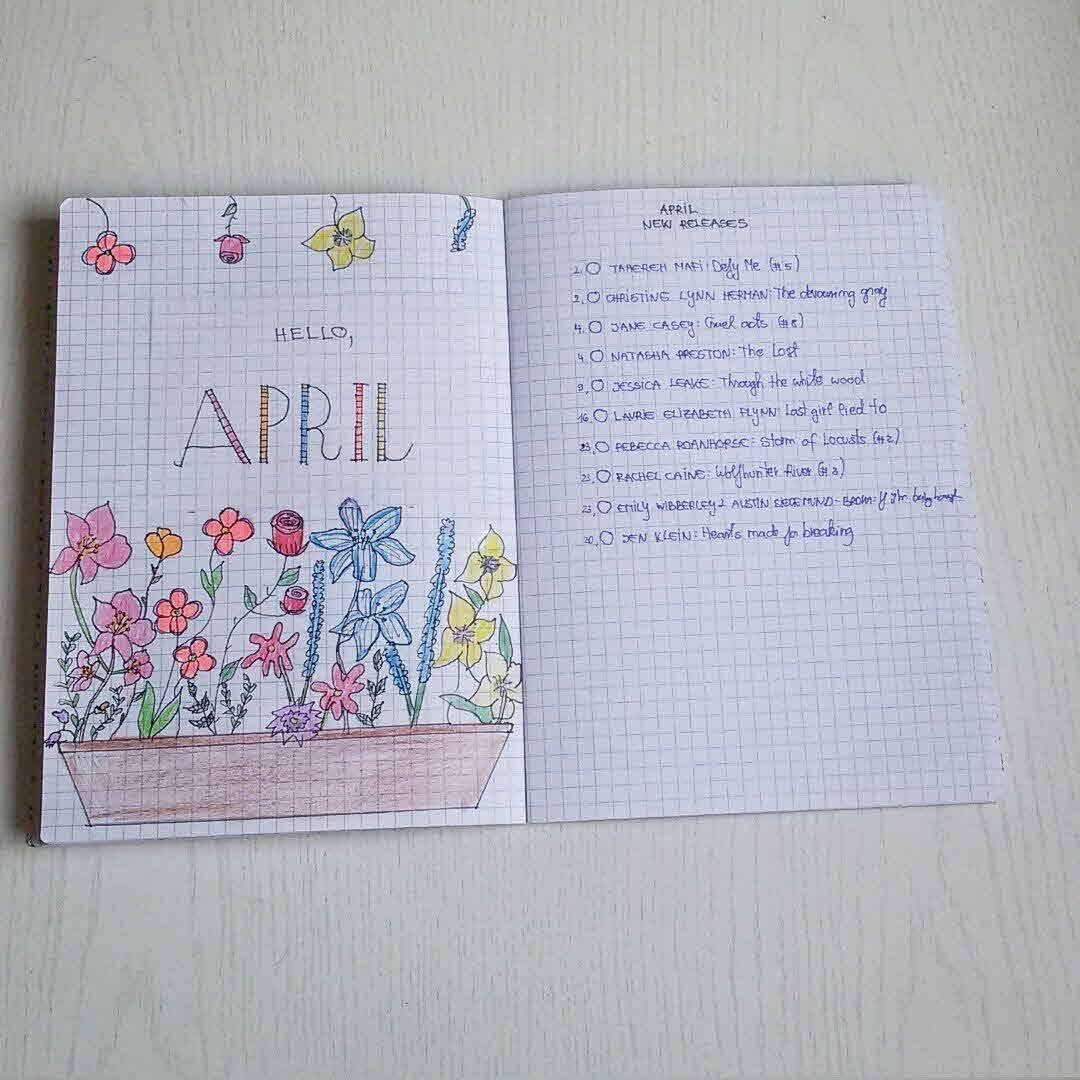 HELLO,
APRIL
APRIL
NEW RELEASES
2. TAHEREH MAFI: Defy Me (#5)
2. CHRISTINE LYNN HERMAN: The devouring gray
4. JANE CASEY: Cruel acts (#8)
4. NATASHA PRESTON: The Lost
9. JESSICA LEAKE: Through the white wood
16. LAURIE ELIZABETH FLYNN: Last girl lied to
23. REBECCA ROANHORSE: Storm of Locusts (#2)
23. RACHEL CAINE: Wolfhunter River (#3)
23. EMILY WIBBERLEY & AUSTIN SIEGEMUND-BROKA: If I'm being honest
30. JEN KLEIN: Hearts made for breaking